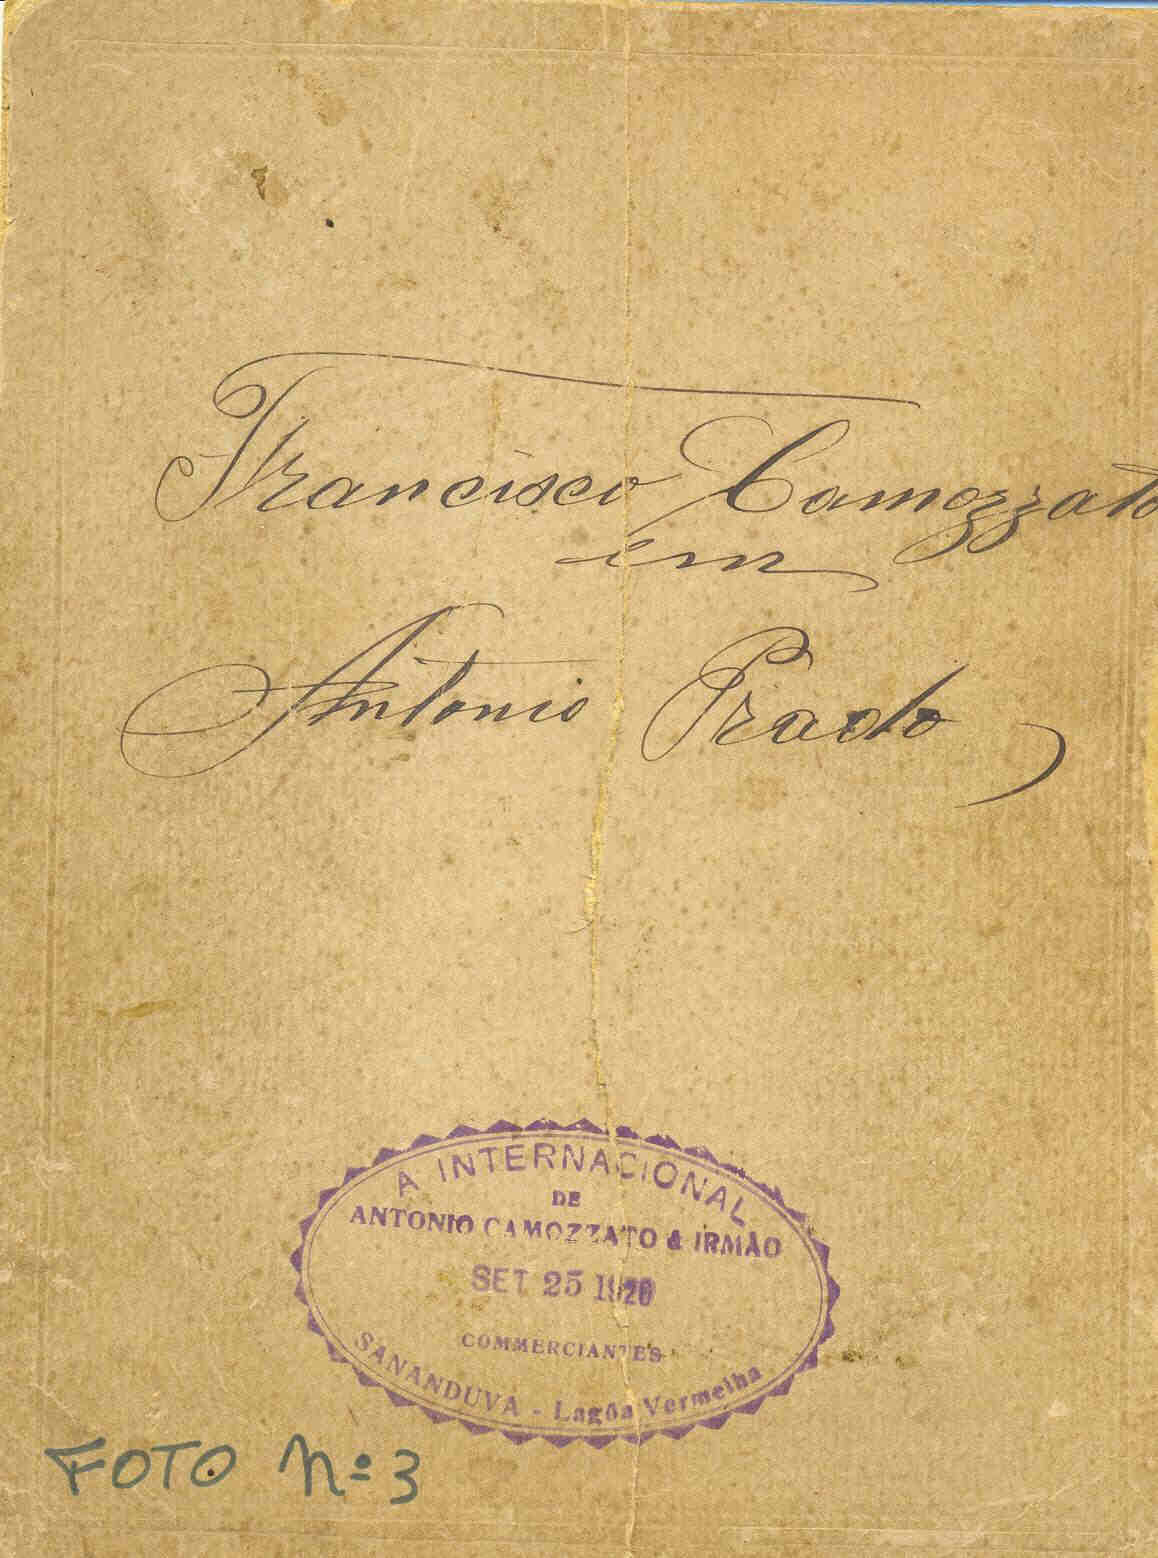 Francisco Camozzato
em
Antonio Prado
A INTERNACIONAL
DE
ANTONIO CAMOZZATO & IRMÃO
SET 25 1920
COMMERCIANTES
SANANDUVA - Lagôa Vermelha
FOTO Nº 3